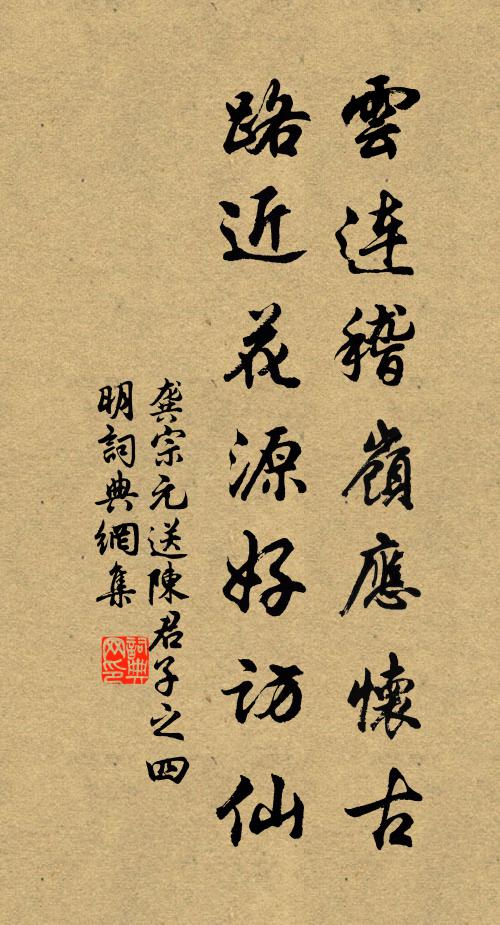 雲連稽嶺應懷古
路近花源好訪仙
龔宗元送陳君子之四
明詞典網集
詞典网印